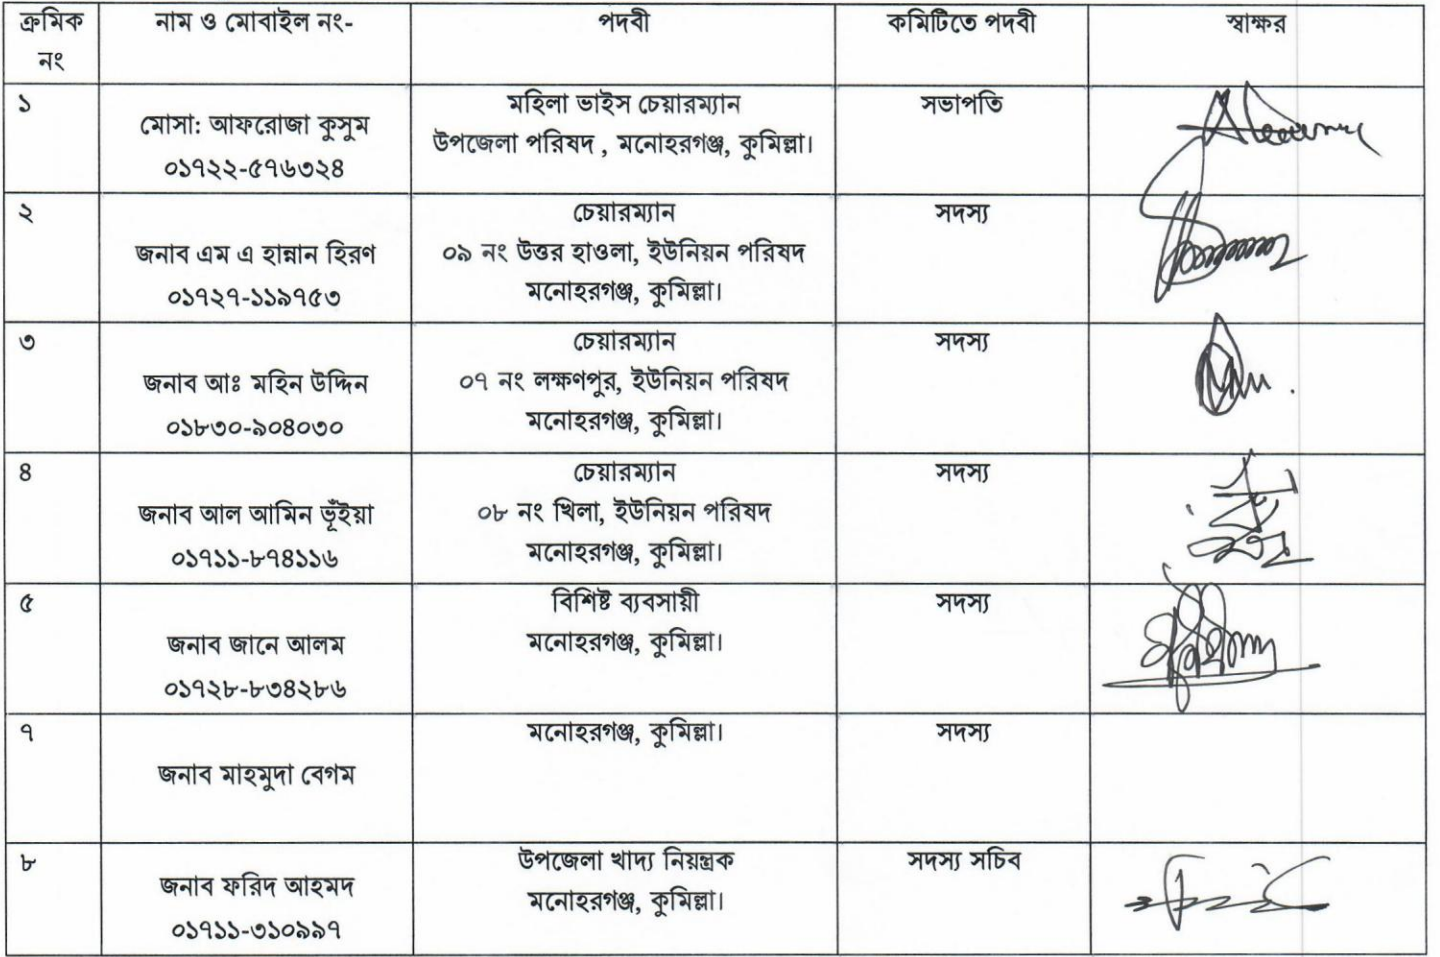 ক্রমিক নং নাম ও মোবাইল নং- পদবী কমিটিতে পদবী স্বাক্ষর
১ মোসা: আফরোজা কুসুম
০১৭২২-৫৭৬৩২৪
মহিলা ভাইস চেয়ারম্যান
উপজেলা পরিষদ , মনোহরগঞ্জ, কুমিল্লা।
সভাপতি
২ জনাব এম এ হান্নান হিরণ
০১৭২৭-১১৯৭৫৩
চেয়ারম্যান
০৯ নং উত্তর হাওলা, ইউনিয়ন পরিষদ
মনোহরগঞ্জ, কুমিল্লা।
সদস্য
৩ জনাব আঃ মহিন উদ্দিন
০১৮৩০-৯০৪০৩০
চেয়ারম্যান
০৭ নং লক্ষণপুর, ইউনিয়ন পরিষদ
মনোহরগঞ্জ, কুমিল্লা।
সদস্য
৪ জনাব আল আমিন ভূঁইয়া
০১৭১১-৮৭৪১১৬
চেয়ারম্যান
০৮ নং খিলা, ইউনিয়ন পরিষদ
মনোহরগঞ্জ, কুমিল্লা।
সদস্য
৫ জনাব জানে আলম
০১৭২৮-৮৩৪২৮৬
বিশিষ্ট ব্যবসায়ী
মনোহরগঞ্জ, কুমিল্লা।
সদস্য
৭ জনাব মাহমুদা বেগম
মনোহরগঞ্জ, কুমিল্লা।
সদস্য
৮ জনাব ফরিদ আহমদ
০১৭১১-৩১০৯৯৭
উপজেলা খাদ্য নিয়ন্ত্রক
মনোহরগঞ্জ, কুমিল্লা।
সদস্য সচিব